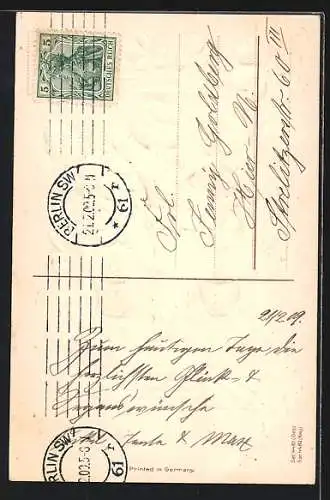 5 5
DEUTSCHES REICH
BERLIN SW
21.2.09.5-6 N
* 19 *
Frl.
Jenny Goldberg
Hier N.
Strelitzerstr. 60 III
21/2.09.
Zum heutigen Tage die
herzlichsten Glück- &
Segenswünsche
Tante & Max
BERLIN SW
2.09.5-6
61
Printed in Germany.